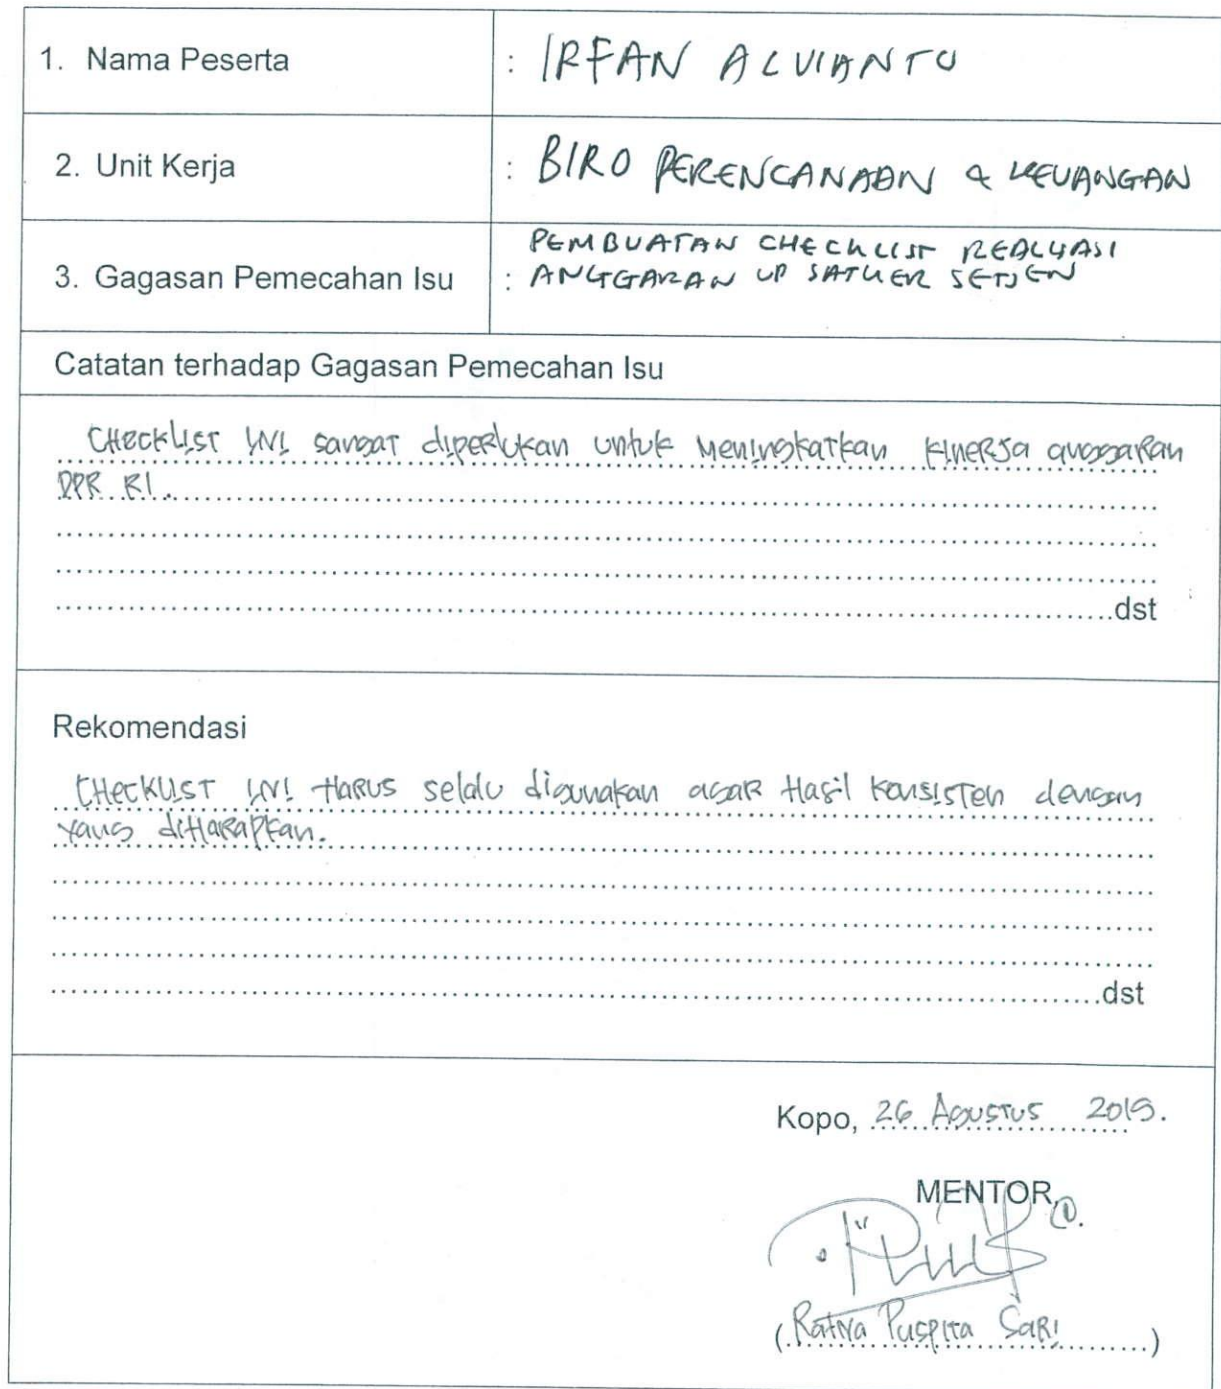 1. Nama Peserta : IRFAN ALVIANTO
2. Unit Kerja : BIRO PERENCANAAN & KEUANGAN
PEMBUATAN CHECKLIST REALISASI
3. Gagasan Pemecahan Isu : ANGGARAN UP SATKER SETJEN
Catatan terhadap Gagasan Pemecahan Isu
CHECKLIST INI sangat diperlukan untuk meningkatkan kinerja anggaran
DPR RI.
dst
Rekomendasi
CHECKLIST INI HARUS selalu digunakan agar Hasil konsisten dengan
yang diHarapkan.
dst
Kopo, 26 Agustus 2019.
MENTOR,
(Ratna Puspita Sari)